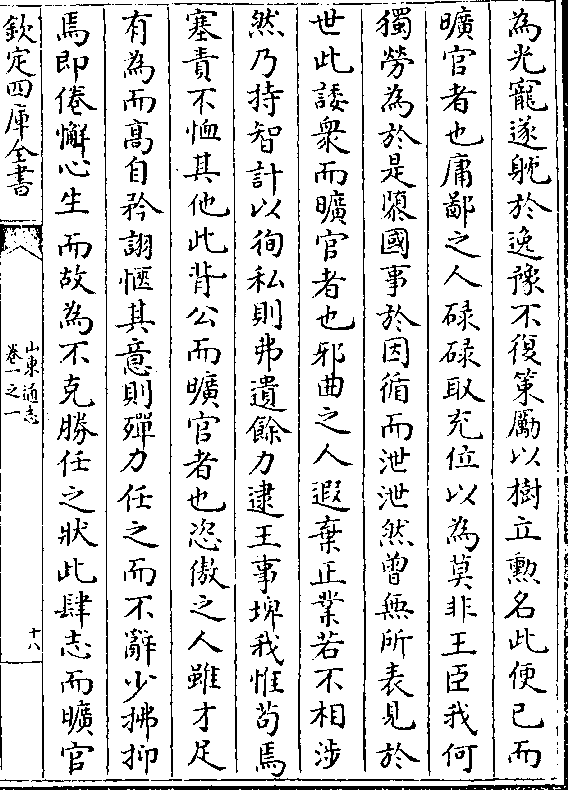 為光寵遂躭於逸豫不復策勵以樹立勲名此便已而
曠官者也庸鄙之人碌碌取充位以為莫非王臣我何
獨勞為於是隳國事於因循而泄泄然曾無所表見於
世此諉衆而曠官者也邪曲之人遐棄正業若不相涉
然乃持智計以徇私則弗遺餘力逮王事埤我惟苟焉
塞責不恤其他此背公而曠官者也恣傲之人雖才足
有為而髙自矜詡愜其意則殫力任之而不辭少拂抑
焉即倦懈心生而故為不克勝任之狀此肆志而曠官
欽定四庫全書
山東通志
卷一之一
十八